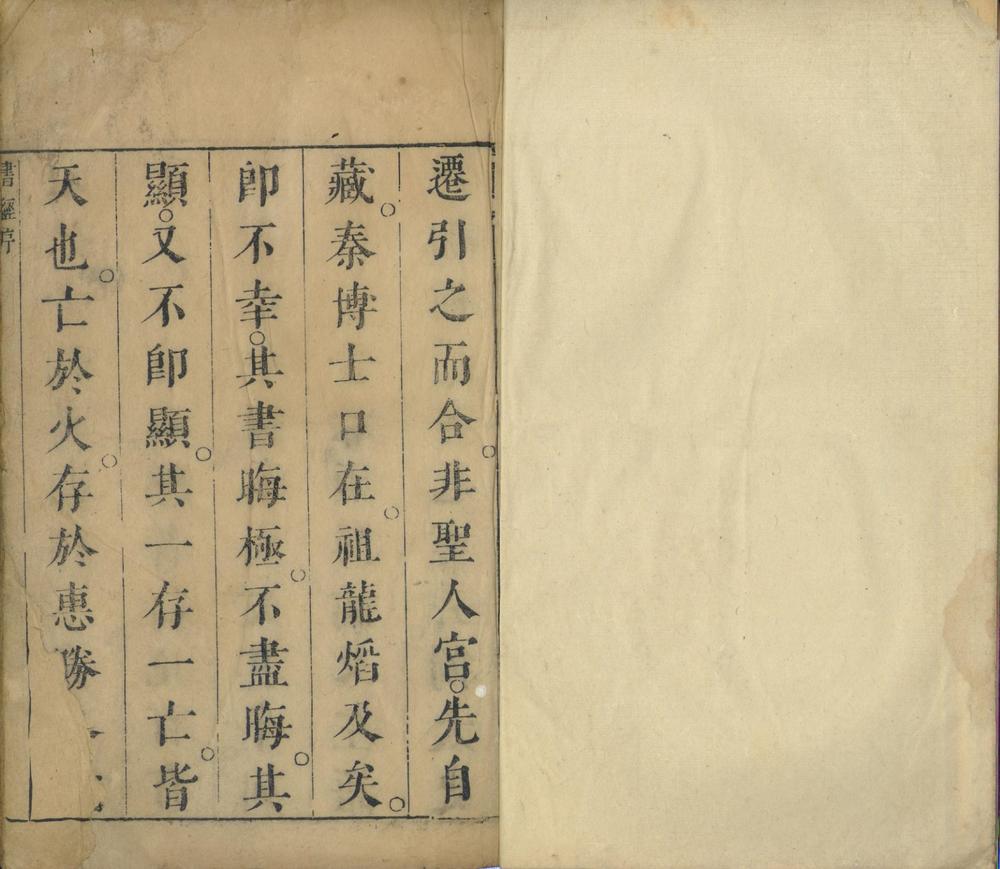 遷引之而合。非聖人宮。先自
藏。秦博士口在。祖龍熖及矣。
卽不幸。其書晦極。不盡晦。其
顯。又不卽顯。其一存一亡。皆
天也。亡於火。存於惠勝
書經序